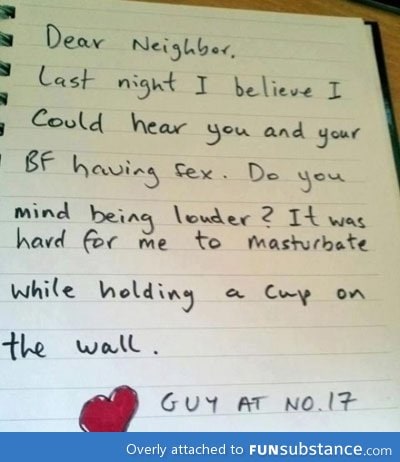 Dear Neighbor,
Last night I believe I
Could hear you and your
BF having sex. Do you
mind being louder? It was
hard for me to masturbate
while holding a cup on
the wall.
GUY AT NO.17
Overly attached to FUNsubstance.com